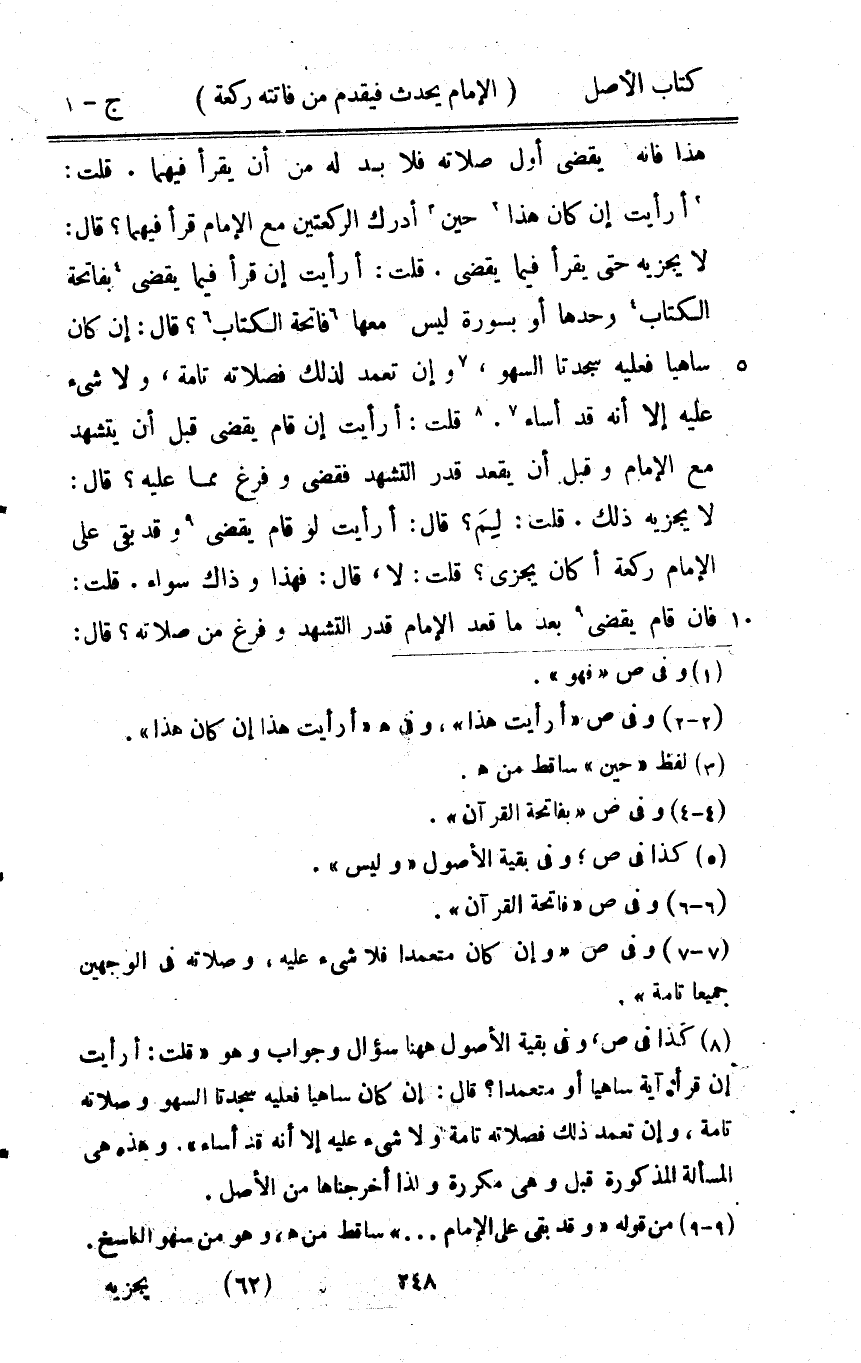 كتاب الأصل ( الإمام يحدث فيقدم من فاتته ركعة ) ج - ١
هذا فانه يقضى أول صلاته فلا بد له من أن يقرأ فيهما . قلت :
٢ أ رأيت إن كان هذا ٢ حين ٣ أدرك الركعتين مع الإمام قرأ فيهما ؟ قال :
لا يجزيه حتى يقرأ فيما يقضى . قلت : أ رأيت إن قرأ فيما يقضى ٤ بفاتحة
الكتاب ٤ وحدها أو بسورة ليس معها ٦ فاتحة الكتاب ٦ ؟ قال : إن كان
ساهيا فعليه سجدتا السهو ، ٧ و إن تعمد لذلك فصلاته تامة ، و لا شىء ٥
عليه إلا أنه قد أساء ٧ . ٨ قلت : أ رأيت إن قام يقضى قبل أن يتشهد
مع الإمام و قبل أن يقعد قدر التشهد فقضى و فرغ مما عليه ؟ قال :
لا يجزيه ذلك . قلت : لِمَ ؟ قال : أ رأيت لو قام يقضى ٩ و قد بقى على
الإمام ركعة أ كان يجزى ؟ قلت : لا ، قال : فهذا و ذاك سواء . قلت :
فان قام يقضى ٩ بعد ما قعد الإمام قدر التشهد و فرغ من صلاته ؟ قال : ١٠
(١) و فى ص « فهو » .
(٢-٢) و فى ص « أ رأيت هذا » ، و فى ه « أ رأيت هذا إن كان هذا » .
(٣) لفظ « حين » ساقط من ه .
(٤-٤) و فى ص « بفاتحة القرآن » .
(٥) كذا فى ص ؛ و فى بقية الأصول « و ليس » .
(٦-٦) و فى ص « فاتحة القرآن » .
(٧-٧) و فى ص « و إن كان متعمدا فلا شىء عليه ، و صلاته فى الوجهين
جميعا تامة » .
(٨) كذا فى ص ، و فى بقية الأصول ههنا سؤال و جواب و هو « قلت : أ رأيت
إن قرأ آية ساهيا أو متعمدا ؟ قال : إن كان ساهيا فعليه سجدتا السهو و صلاته
تامة ، و إن تعمد ذلك فصلاته تامة و لا شىء عليه إلا أنه قد أساء » . و هذه هى
المسألة المذكورة قبل و هى مكررة و لذا أخرجناها من الأصل .
(٩-٩) من قوله « و قد بقى على الإمام ... » ساقط من ه ، و هو من سهو الناسخ .
٢٤٨ (٦٢) يجزيه